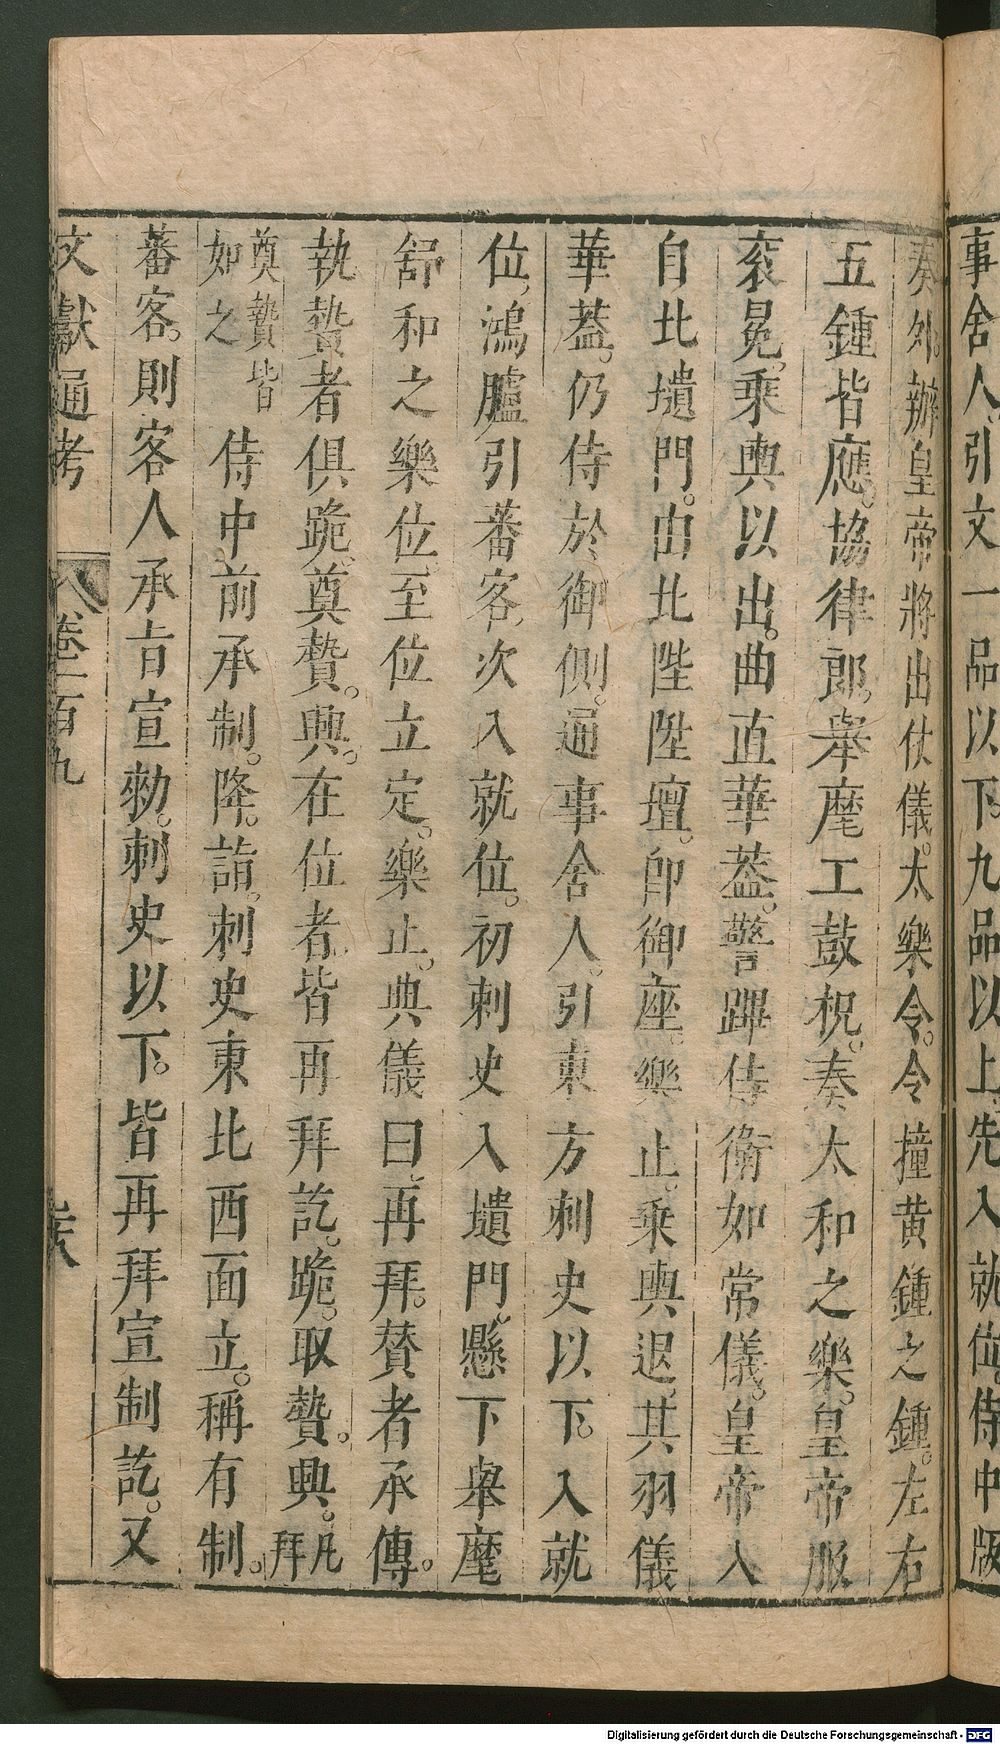 事舍人引文一品以下九品以上先入就位侍中版
奏外。辦皇帝將出仗儀。太樂令。令撞黄鍾之鍾。左右
五鍾皆應。協律郎。舉麾工鼓柷。奏太和之樂。皇帝服
衮冕。乘輿以出。曲直華蓋。警蹕侍衛如常儀。皇帝入
自北壝門。由北陛陞壇。卽御座。樂止。乘輿退。其羽儀
華蓋。仍侍於御側。通事舍人。引東方刺史以下。入就
位。鴻臚引蕃客次入就位。初刺史入壝門。懸下舉麾
舒和之樂位至位立定。樂止。典儀曰。再拜。贊者承傳。
執贄者俱跪。奠贄。興。在位者皆再拜訖。跪。取贄。興。凡拜
奠贄皆如之侍中前承制。降。詣。刺史東北西面立。稱有制。
蕃客。則客人承旨宣勑。刺史以下。皆再拜宣制訖。又
文獻通考 卷一百九 共
Digitalisierung gefördert durch die Deutsche Forschungsgemeinschaft - DFG